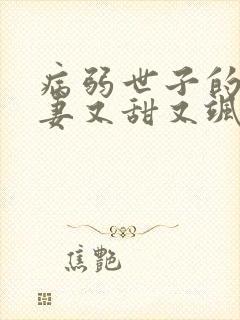 病弱世子的
妻又甜又飒
焦艷